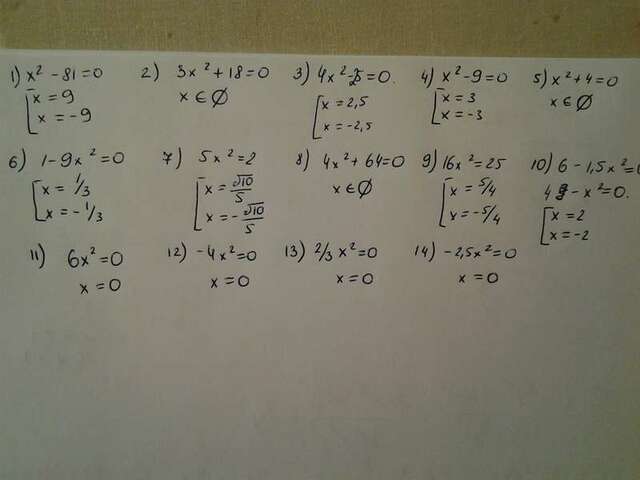 1) x² - 81 = 0
x = 9
x = -9
2) 3x² + 18 = 0
x ∈ ∅
3) 4x² - = 0.
x = 2,5
x = -2,5
4) x² - 9 = 0
x = 3
x = -3
5) x² + 4 = 0
x ∈ ∅
6) 1 - 9x² = 0
x = 1/3
x = -1/3
7) 5x² = 2
x = √10/5
x = -√10/5
8) 4x² + 64 = 0
x ∈ ∅
9) 16x² = 25
x = 5/4
x = -5/4
10) 6 - 1,5x² = 0
4 - x² = 0.
x = 2
x = -2
11) 6x² = 0
x = 0
12) -4x² = 0
x = 0
13) 2/3 x² = 0
x = 0
14) -2,5x² = 0
x = 0